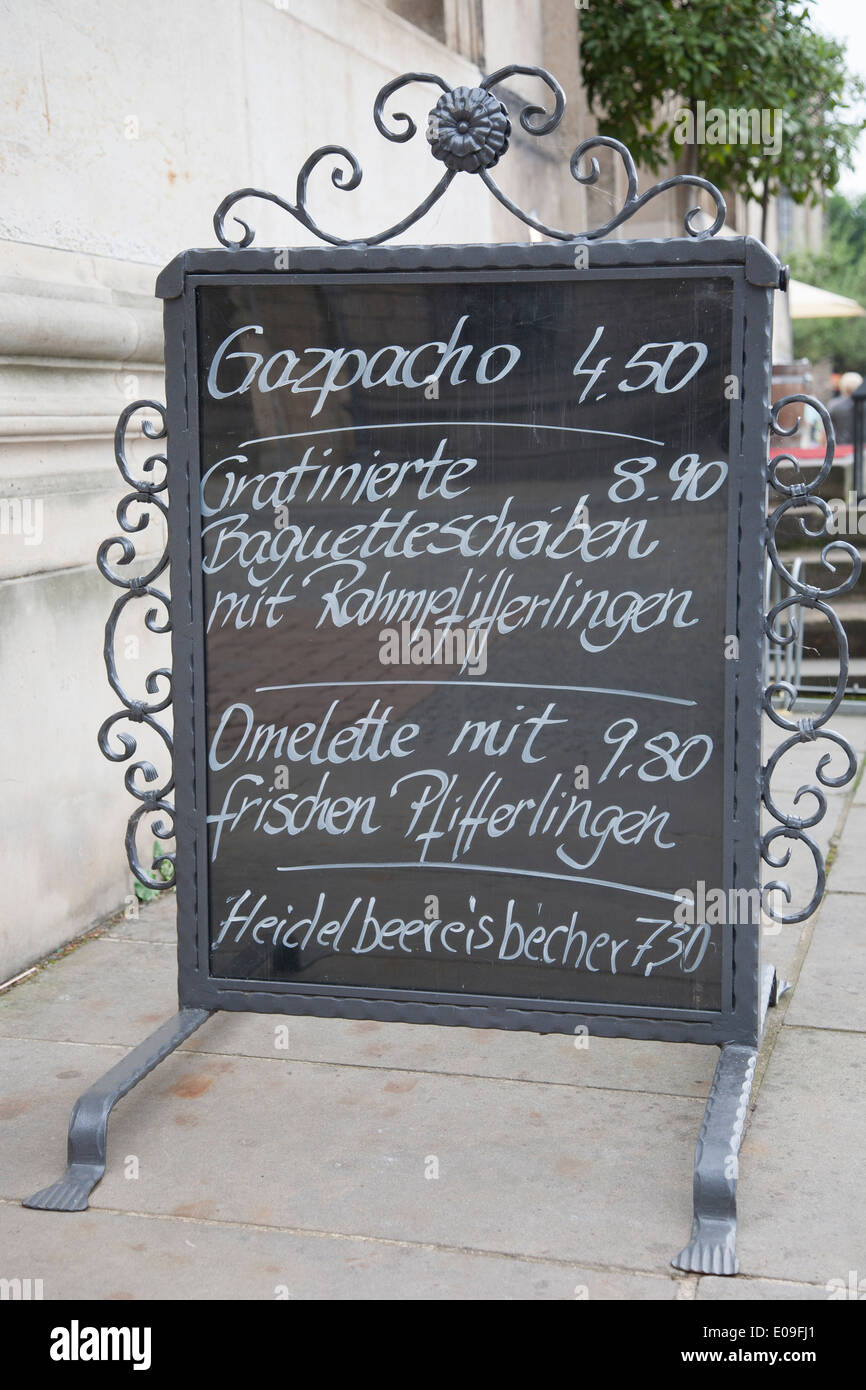 Gazpacho 4.50
Gratinierte 8.90
Baguettescheiben
mit Rahmpfifferlingen
Omelette mit 9.80
frischen Pfifferlingen
Heidelbeereisbecher 7,30
a
alamy
a
alamy
Image ID: E09FJ1
www.alamy.com